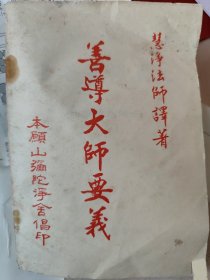 慧淨法師譯著
善導大師要義
本願山彌陀淨舍倡印